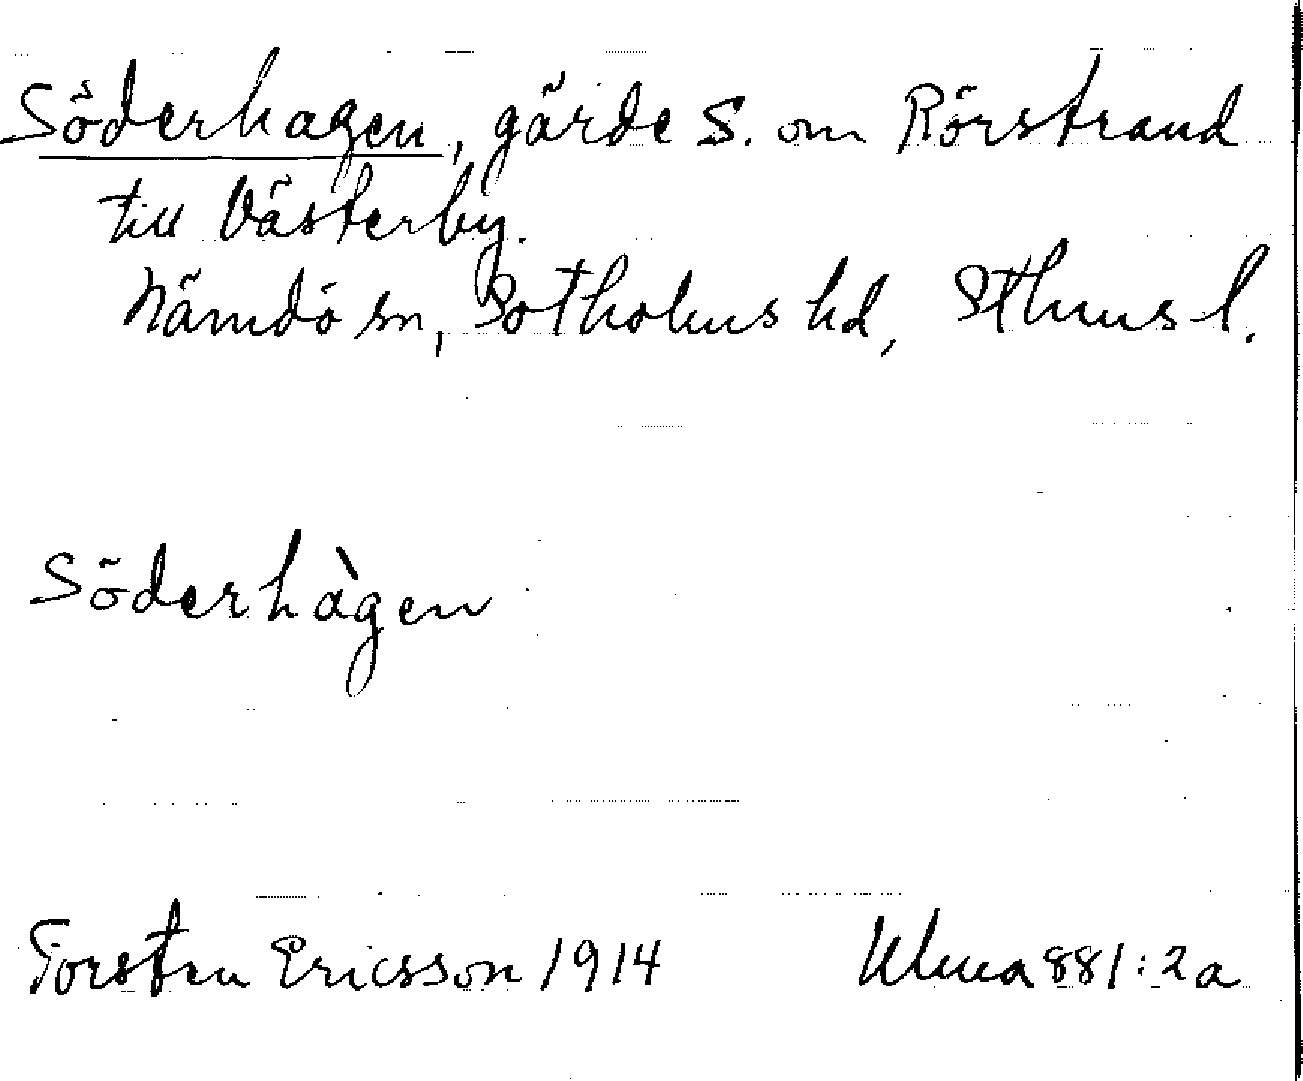 Söderhagen, gärde S. om Rörstrand
till Västerby.
Nämdö sn, Sotholms hd, Sthms l.
Söderhàgen
Torsten Ericsson 1914 Ulma 881:2a